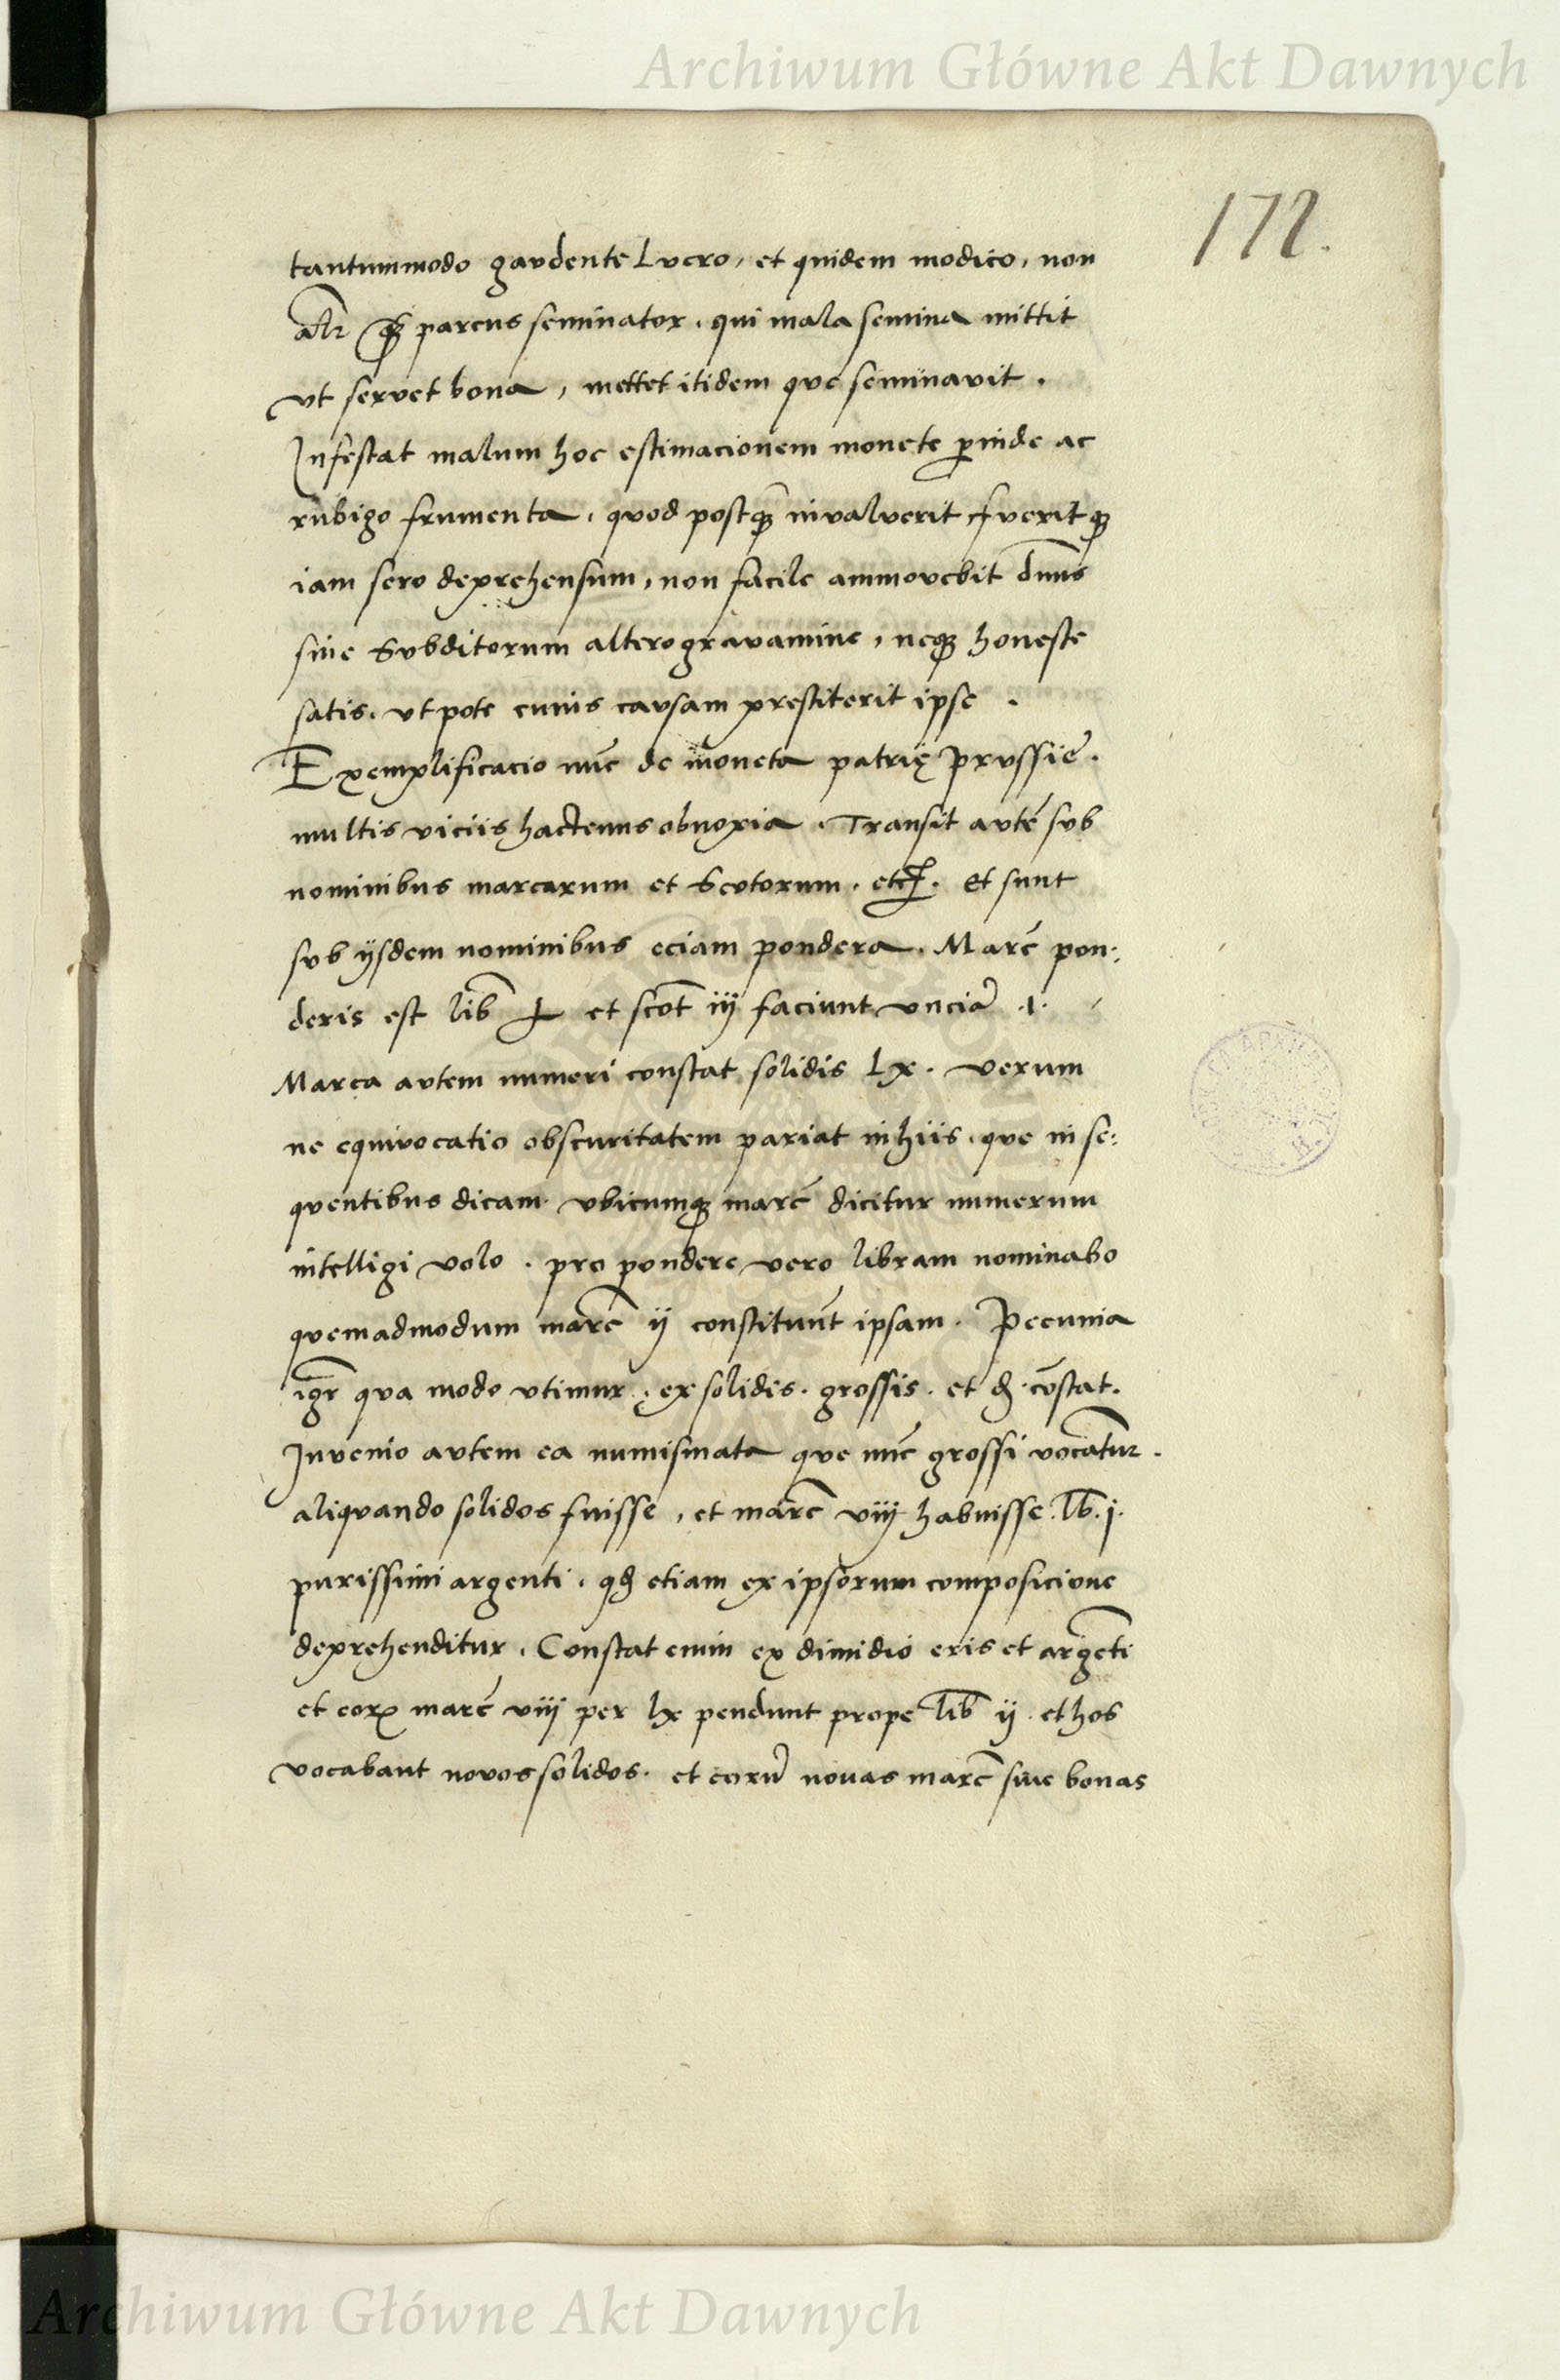 Archiwum Główne Akt Dawnych
172.
tantummodo gaudente Lvcro, et quidem modico, non
alr̄ qȝ parcus seminator. qui mala semina mittit
vt servet bona, mettet itidem qve seminavit.
Infestat malum hoc estimacionem monete ꝑinde ac
rubigo frumenta. qvod postqȝ invalverit fveritqȝ
iam sero deprehensum, non facile ammovebit dn̄us
sine Svbditorum altero gravamine, neqȝ honeste
satis. vt pote cuius cavsam prestiterit ipse.
Exemplificacio nūc de moneta patrię prvssiē.
multis viciis hactenus obnoxia. Transit avtē svb
nominibus marcarum et Scotorum. etc̄. et sunt
svb ijsdem nominibus eciam pondera. Marc̄ pon:
deris est lib̄ et scot̄ iij faciunt vnciā .1.
Marca avtem numeri constat solidis Lx. verum
ne equivocatio obscuritatem pariat in hiis. qve in se:
qventibus dicam. vbicumqȝ marc̄ dicitur numerum
intelligi volo. pro pondere vero libram nominabo
qvemadmodum marc̄ ij constituūt ipsam. Pecunia
igr̄ qva modo vtimur. ex solidis. grossis. et đ. cōstat.
Invenio avtem ea numismata qve nūc grossi vocātur.
aliqvando solidos fuisse, et marc̄ viij habuisse. lb̄. j.
purissimi argenti. qđ etiam ex ipsorum composicione
deprehenditur. Constat enim ex dimidio eris et argēti
et eorꝝ marc̄ viij per lx pendunt prope lib̄ ij. et hos
vocabant novos solidos. et eorū novas marc̄ sive bonas
Archiwum Główne Akt Dawnych